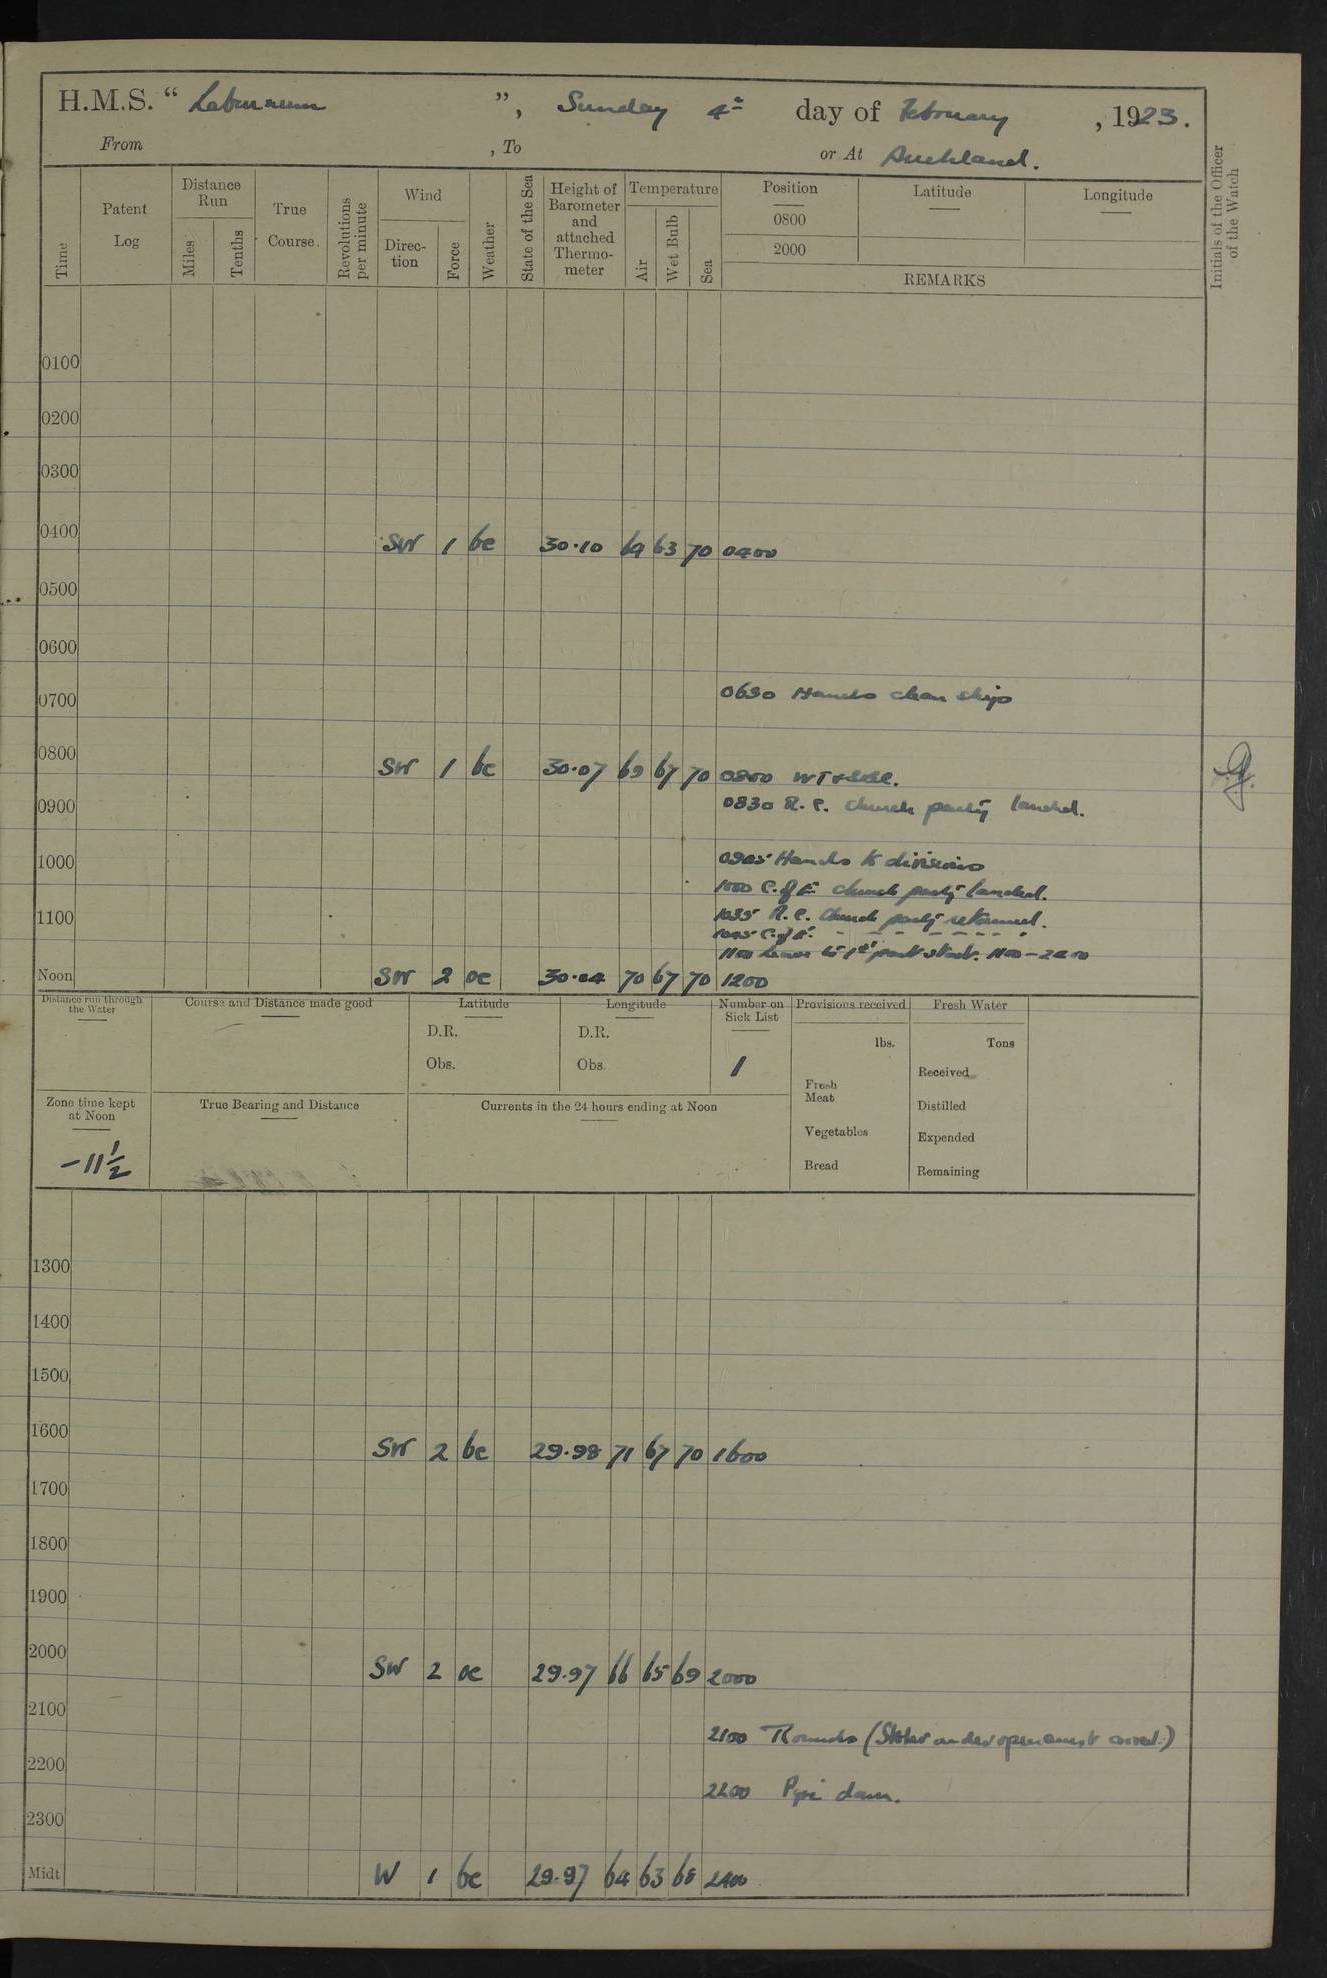 H.M.S. “ Laburnum ”, Sunday 4th day of February, 1923.
From , To or At Auckland.
Time
Patent Log
Distance Run
Miles
Tenths
True Course.
Revolutions per minute
Wind
Direc-tion
Force
Weather
State of the Sea
Height of Barometer and attached Thermo-meter
Temperature
Air
Wet Bulb
Sea
Position
0800
2000
Latitude
Longitude
REMARKS
Initials of the Officer of the Watch
0100
0200
0300
0400 SW 1 bc 30·10 64 63 70 0400
0500
0600
0630 Hands clean ship
0700
0800 SW 1 bc 30·07 69 67 70 0800
0830 R.C. Church party landed.
0900
0905 Hands to divisions
1000
1000 C. of E. church party landed.
1035 R.C. Church party returned.
1100
1045 C. of E. - - - - - - -
1100 Leave to 1st part 1100 - 2200
Noon SW 2 oc 30·04 70 67 70 1200
Distance run through the Water
Course and Distance made good
Latitude
D.R.
Obs.
Longitude
D.R.
Obs.
Number on Sick List
1
Provisions received
lbs.
Fresh Meat
Vegetables
Bread
Fresh Water
Tons
Received
Distilled
Expended
Remaining
Zone time kept at Noon
-11½
True Bearing and Distance
Currents in the 24 hours ending at Noon
1300
1400
1500
1600 SW 2 bc 29·98 71 67 70 1600
1700
1800
1900
2000 SW 2 oc 29·97 66 65 69 2000
2100
2100 Rounds
2200
2200 Pipe down.
2300
Midt W 1 bc 29·97 64 63 68 2400